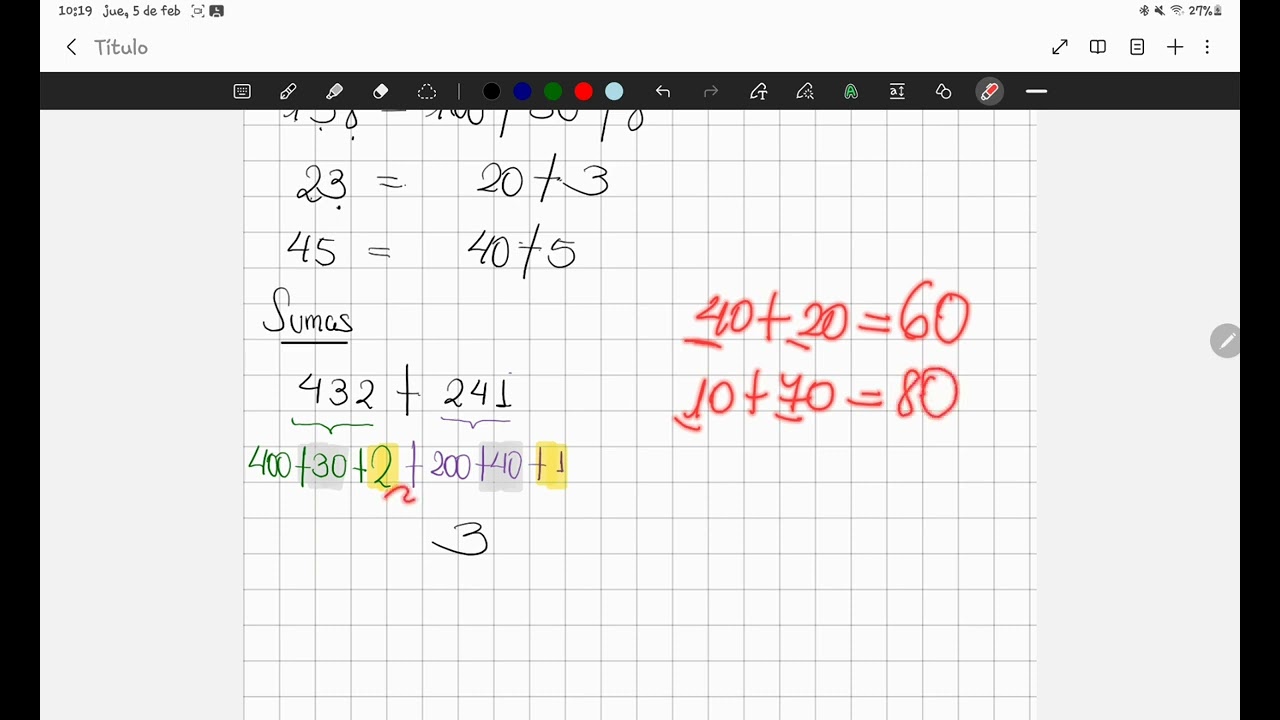 10:19 jue, 5 de feb
27%
Título
23 = 20+3
45 = 40+5
Sumas
432 + 241
400+30+2 + 200+40+1
3
40+20=60
10+70=80